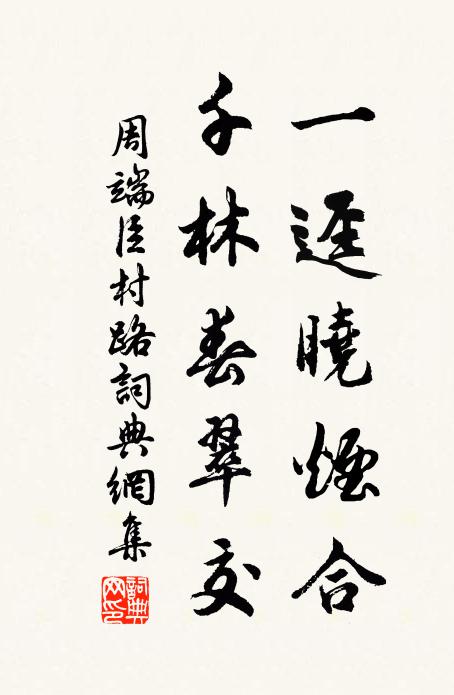 一逕曉煙合
千林春翠交
周端臣村路詞典網集
詞典網印